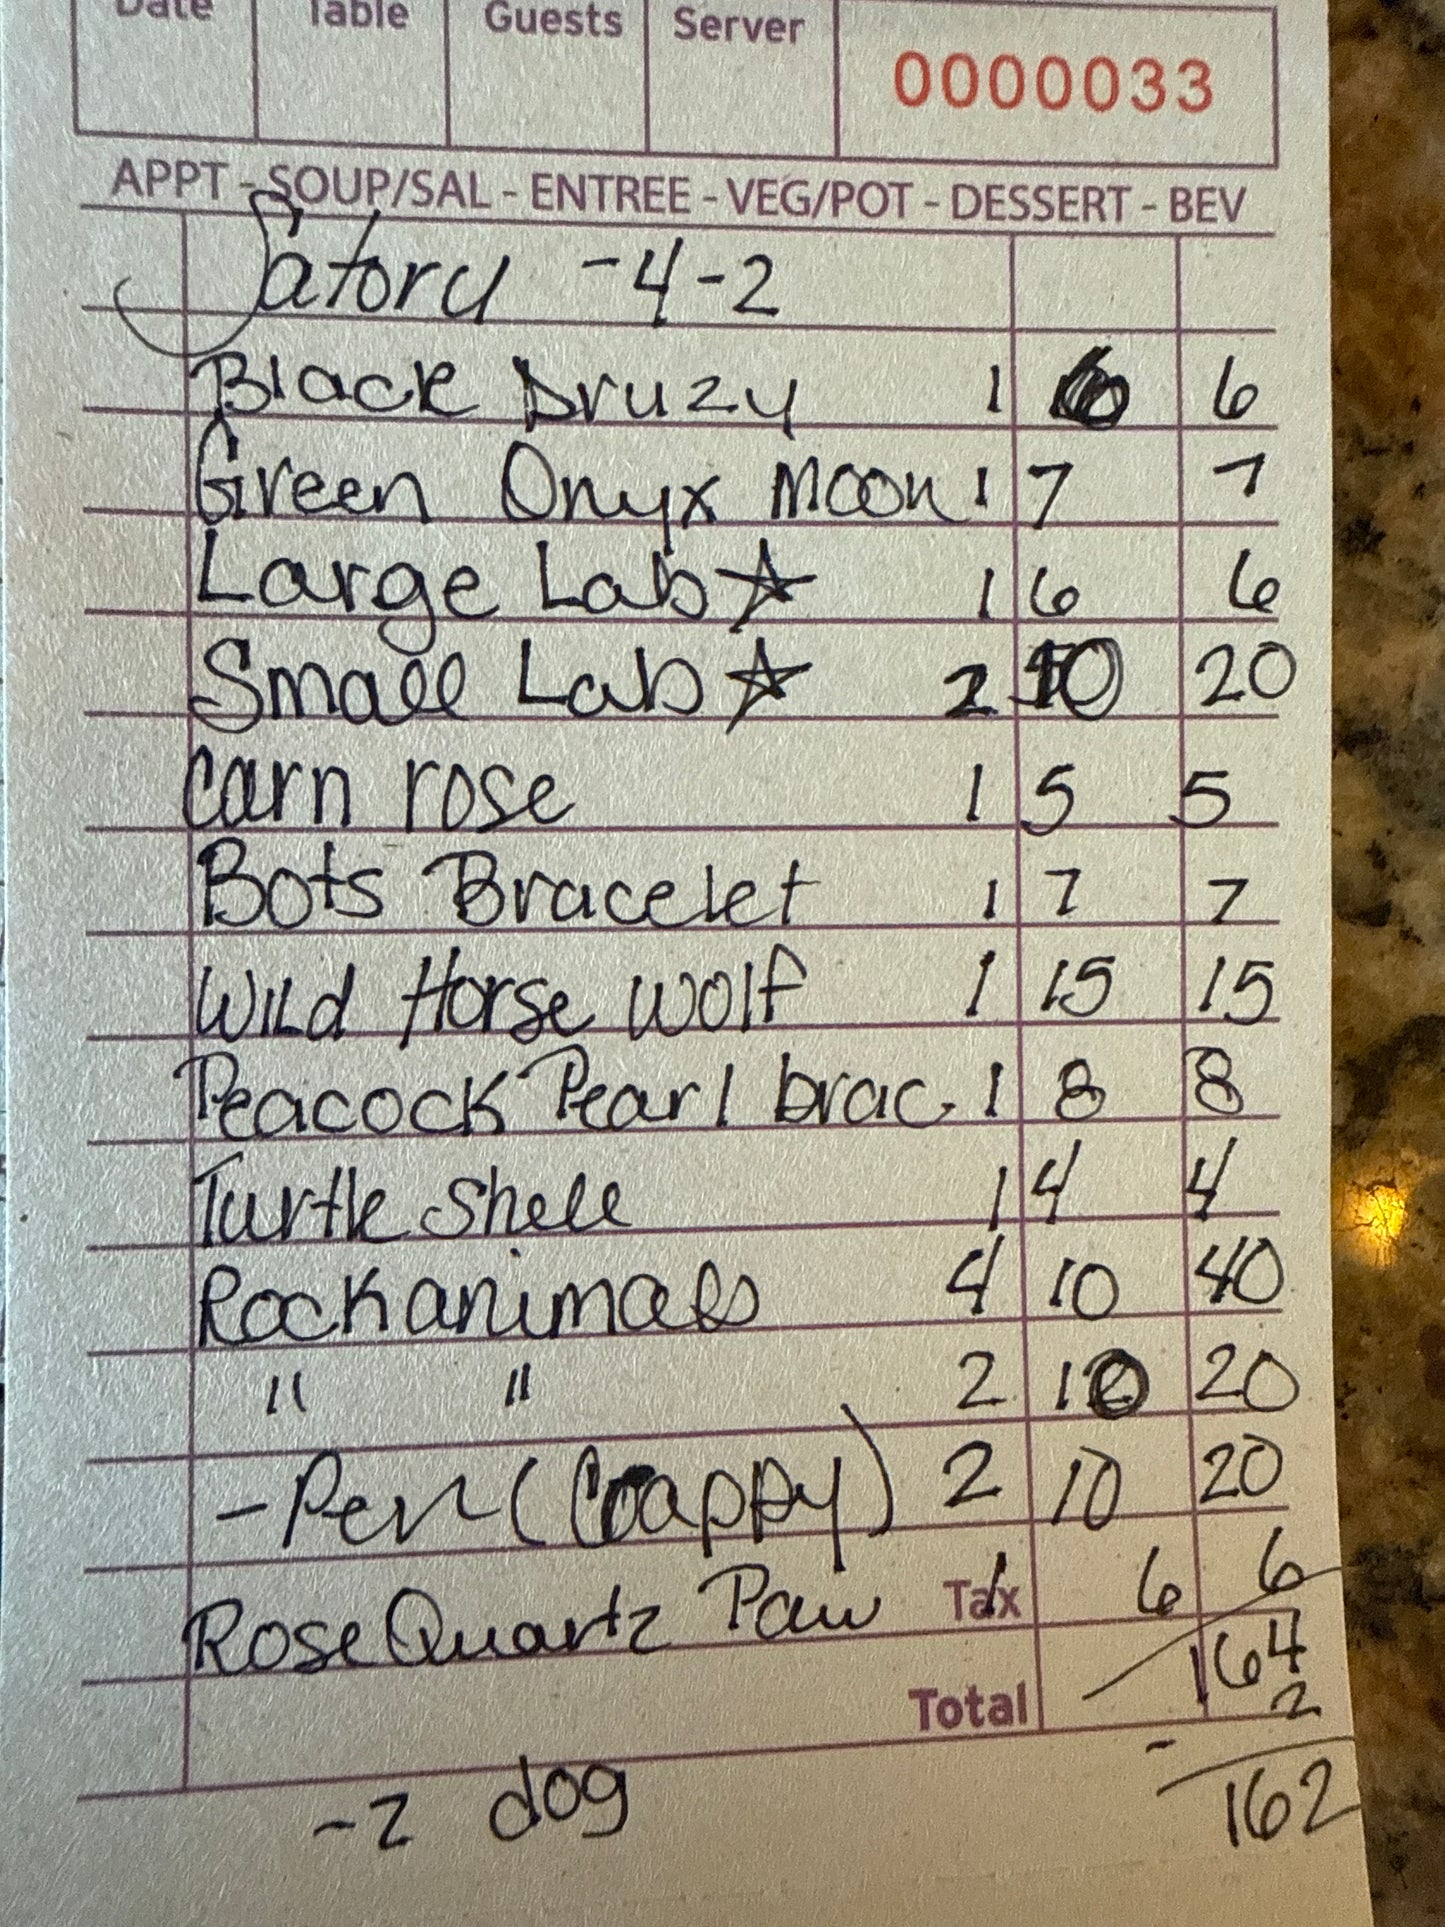 Date Table Guests Server 0000033
APPT - SOUP/SAL - ENTREE - VEG/POT - DESSERT - BEV
Satoru -4-2
Black Druzy 1 6 6
Green Onyx Moon 1 7 7
Large Lab ☆ 1 6 6
Small Lab ☆ 2 10 20
carn rose 1 5 5
Bots Bracelet 1 7 7
Wild Horse Wolf 1 15 15
Peacock Pearl brac. 1 8 8
Turtle Shell 1 4 4
Rock animals 4 10 40
" " 2 10 20
- Pen (Crappy) 2 10 20
Rose Quartz Paw Tax 1 6 6
164
Total - 2
-2 dog 162